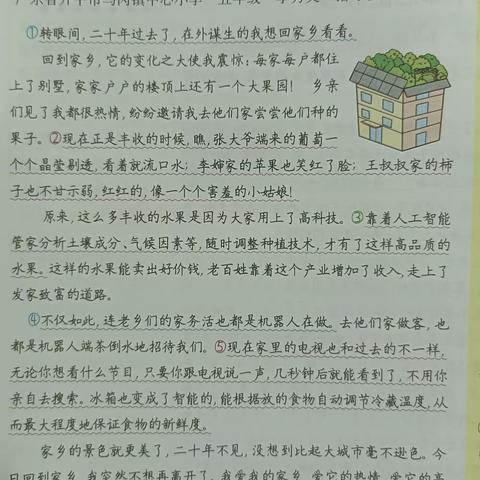 ①转眼间,二十年过去了,在外谋生的我想回家乡看看。
回到家乡,它的变化之大使我震惊:每家每户都住
上了别墅,家家户户的楼顶上还有一个大果园! 乡亲
们见了我都很热情,纷纷邀请我去他们家尝尝他们种的
果子。②现在正是丰收的时候,瞧,张大爷端来的葡萄一
个个晶莹剔透,看着就流口水;李婶家的苹果也笑红了脸;王叔叔家的柿
子也不甘示弱,红红的,像一个个害羞的小姑娘!
原来,这么多丰收的水果是因为大家用上了高科技。③靠着人工智能
管家分析土壤成分、气候因素等,随时调整种植技术,才有了这样高品质的
水果。这样的水果能卖出好价钱,老百姓靠着这个产业增加了收入,走上了
发家致富的道路。
④不仅如此,连老乡们的家务活也都是机器人在做。去他们家做客,也
都是机器人端茶倒水地招待我们。⑤现在家里的电视也和过去的不一样,
无论你想看什么节目,只要你跟电视说一声,几秒钟后就能看到了,不用你
亲自去搜索。冰箱也变成了智能的,能根据放的食物自动调节冷藏温度,从
而最大程度地保证食物的新鲜度。
家乡的景色就更美了,二十年不见,没想到比起大城市毫不逊色。今
日回到家乡,我突然不想再离开了。我爱我的家乡,爱它的热情,爱它的高